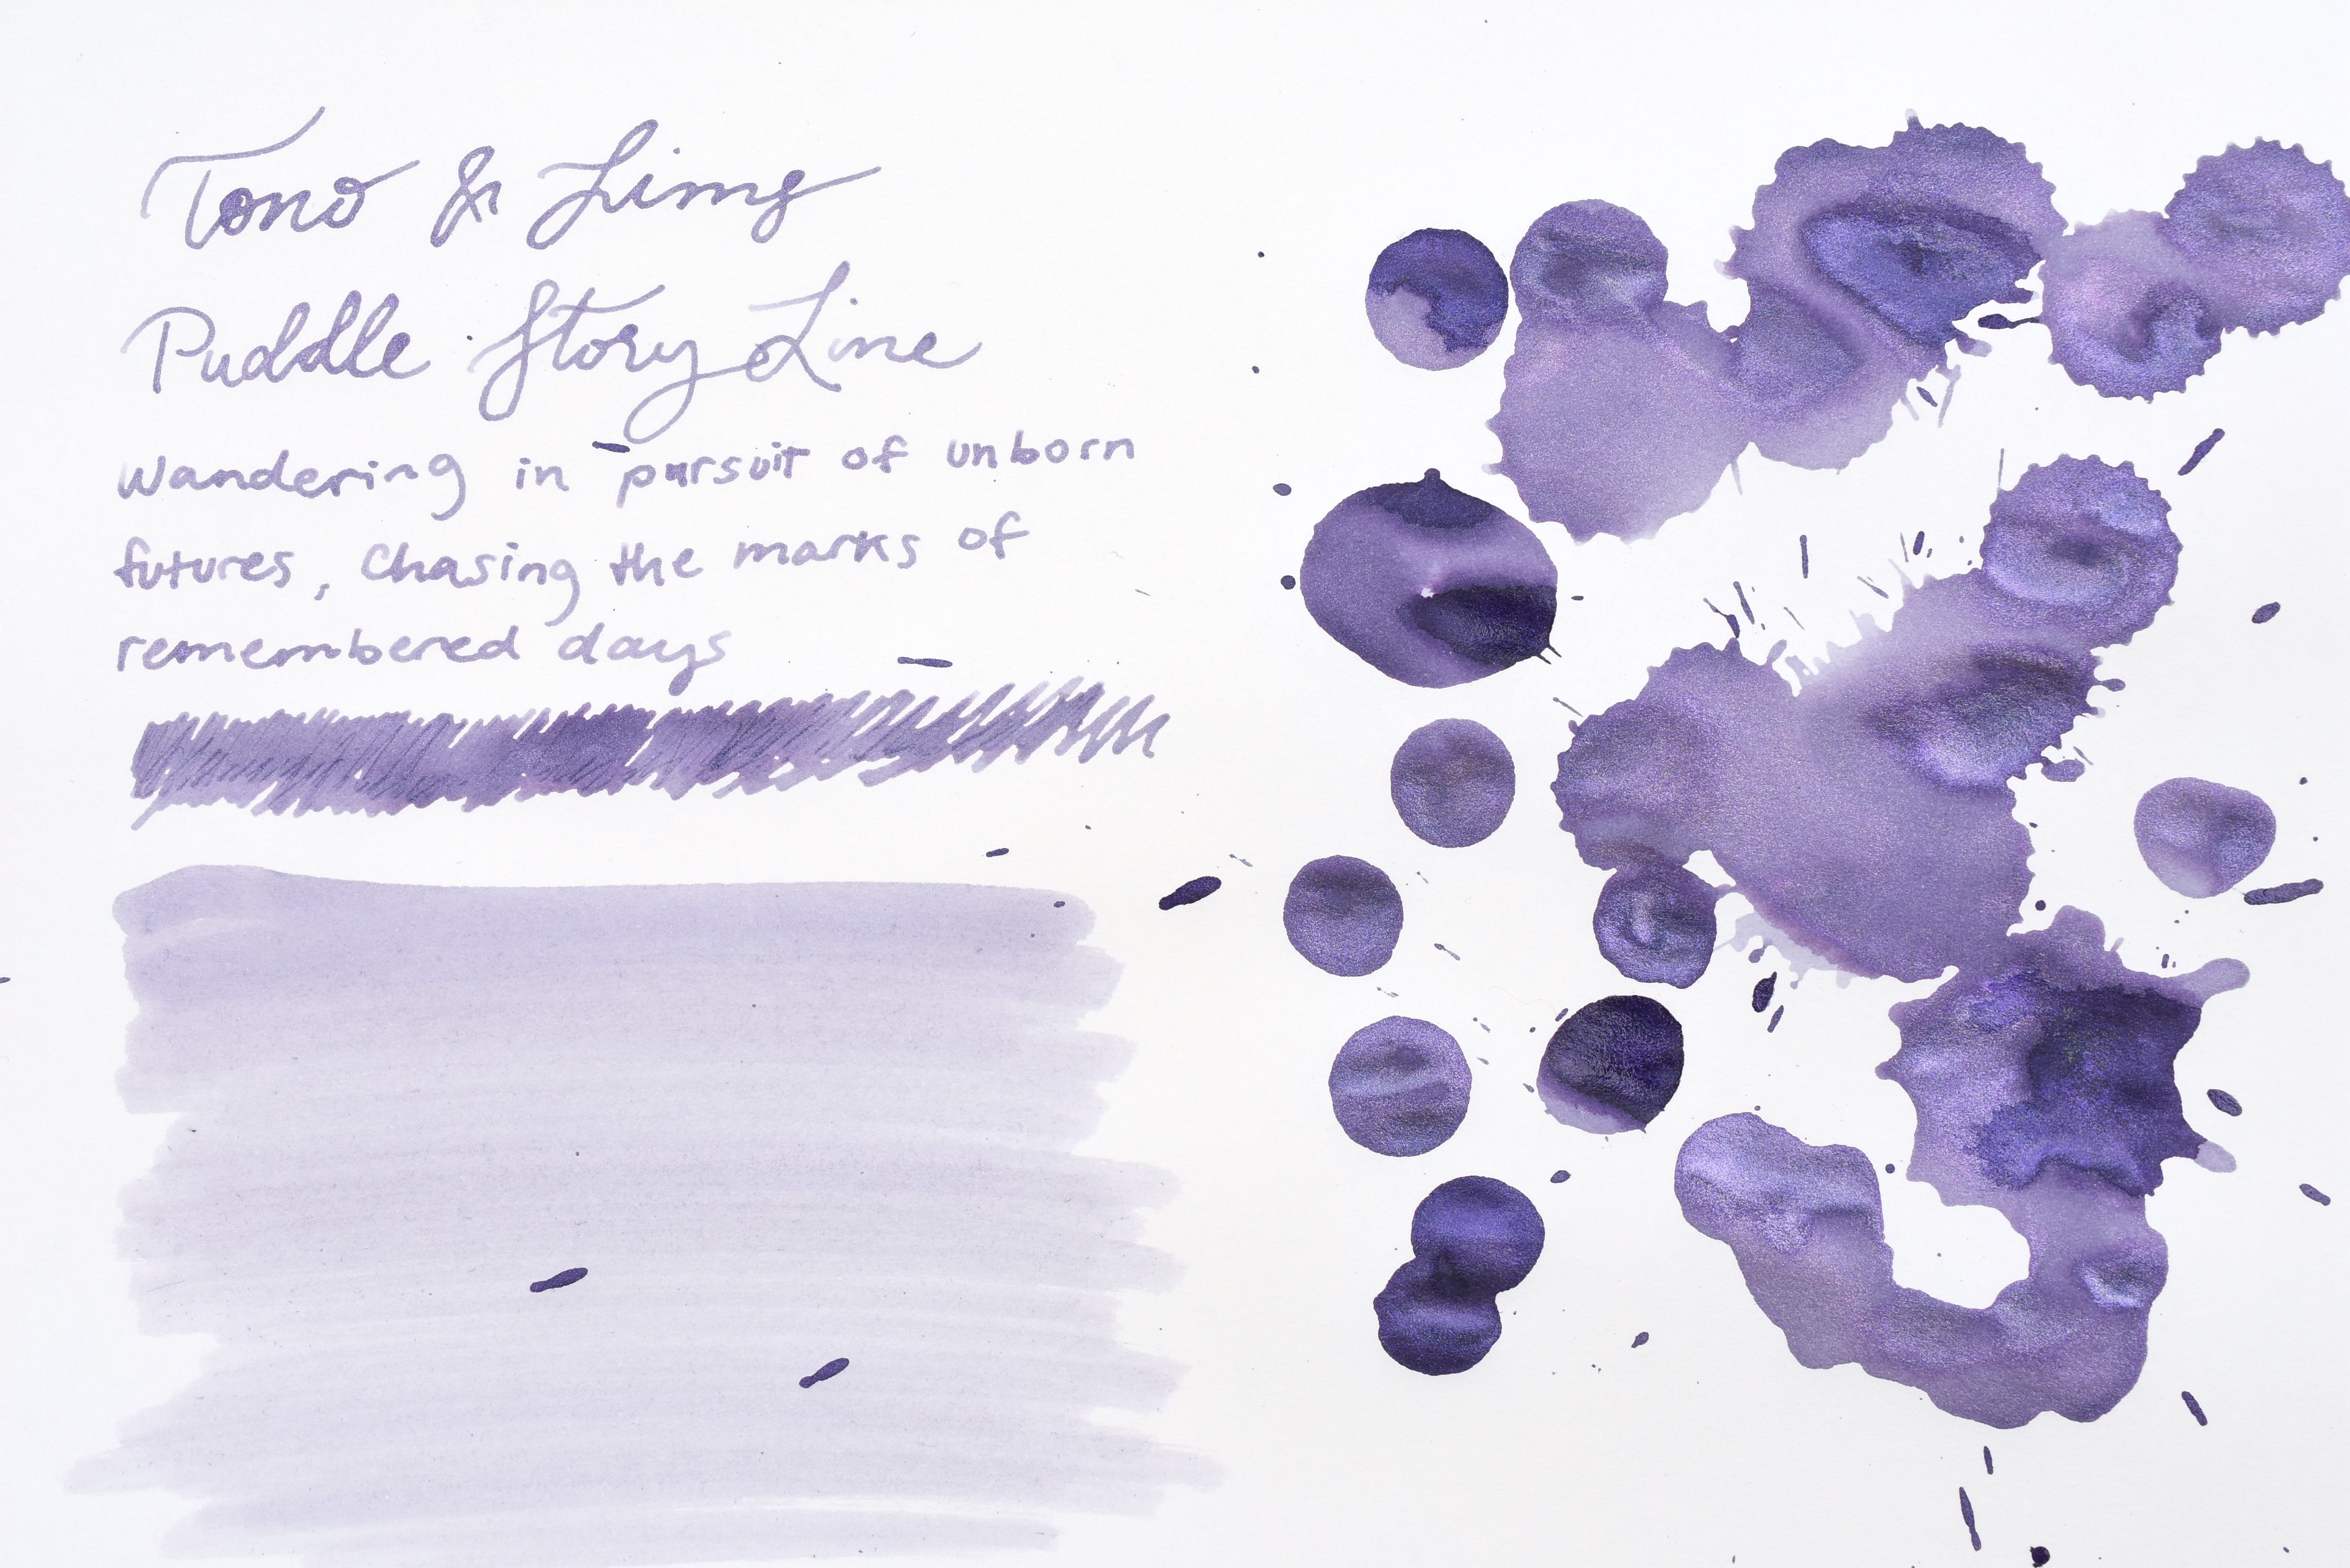 Tono & Lims
Puddle Story Line
Wandering in pursuit of unborn
futures, Chasing the marks of
remembered days